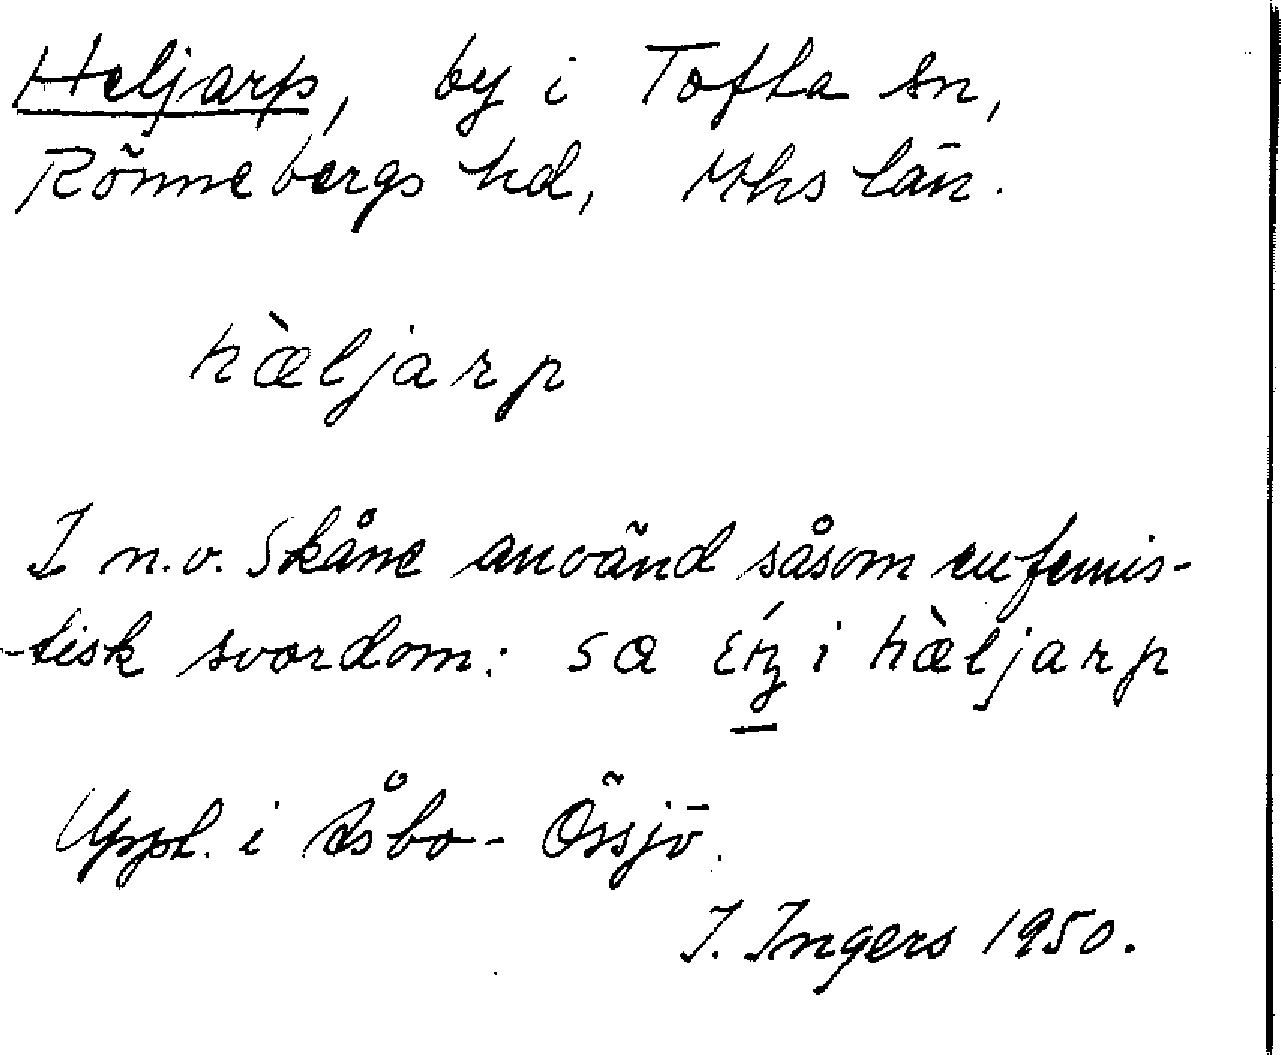 Heljarp, by i Tofta sn,
Rönnebergs hd, Mhs län.
hàeljarp
I n.v. Skåne använd såsom eufemis-
-tisk svordom: i hàeljarp
Uppt. i Åsbo-Össjö.
I. Ingers 1950.